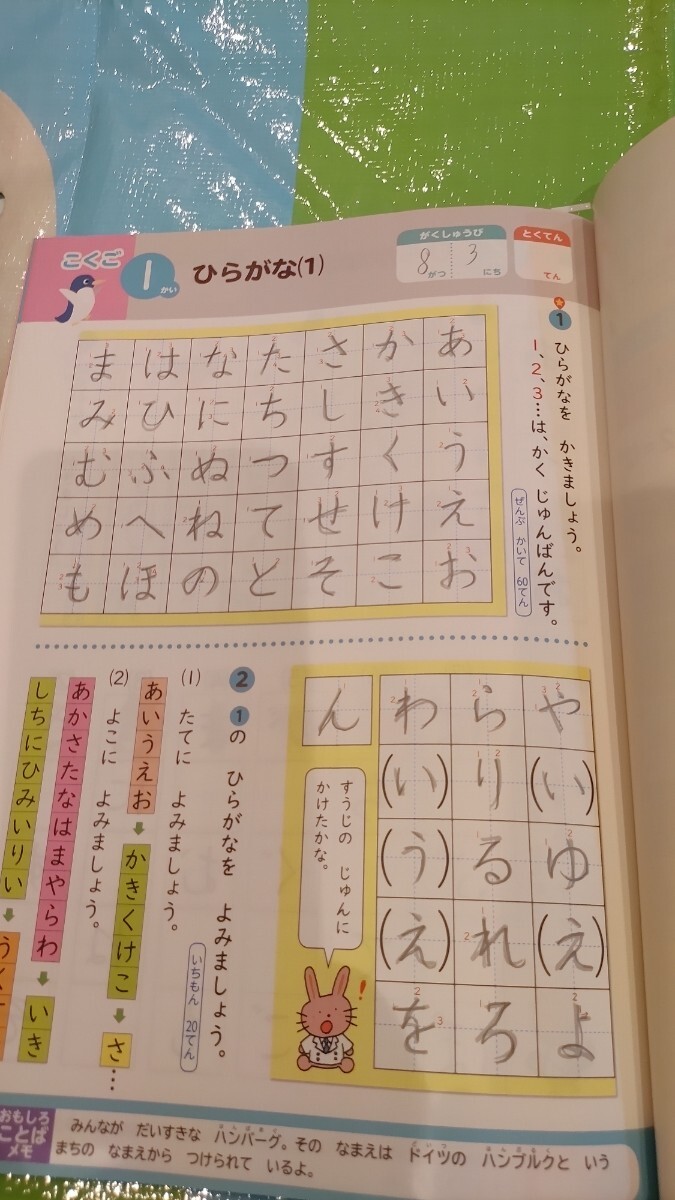 こくご
1かい
ひらがな(1)
がくしゅうび
8がつ 3にち
とくてん
てん
1
ひらがなを かきましょう。
1、2、3…は、かく じゅんばんです。
ぜんぶ かいて 60てん
あいうえお
かきくけこ
さしすせそ
たちつてと
なにぬねの
はひふへほ
まみむめも
や(い)ゆ(え)よ
らりるれろ
わ(い)(う)(え)を
ん
すうじの じゅんに
かけたかな。
!
2
1の ひらがなを よみましょう。
いちもん 20てん
(1) たてに よみましょう。
あいうえお→かきくけこ→さ…
(2) よこに よみましょう。
あかさたなはまやらわ→いき
しちにひみいりい→うく
おもしろ
ことば
メモ
みんなが だいすきな ハンバーグ。その なまえは ドイツの ハンブルクと いう
まちの なまえから つけられて いるよ。